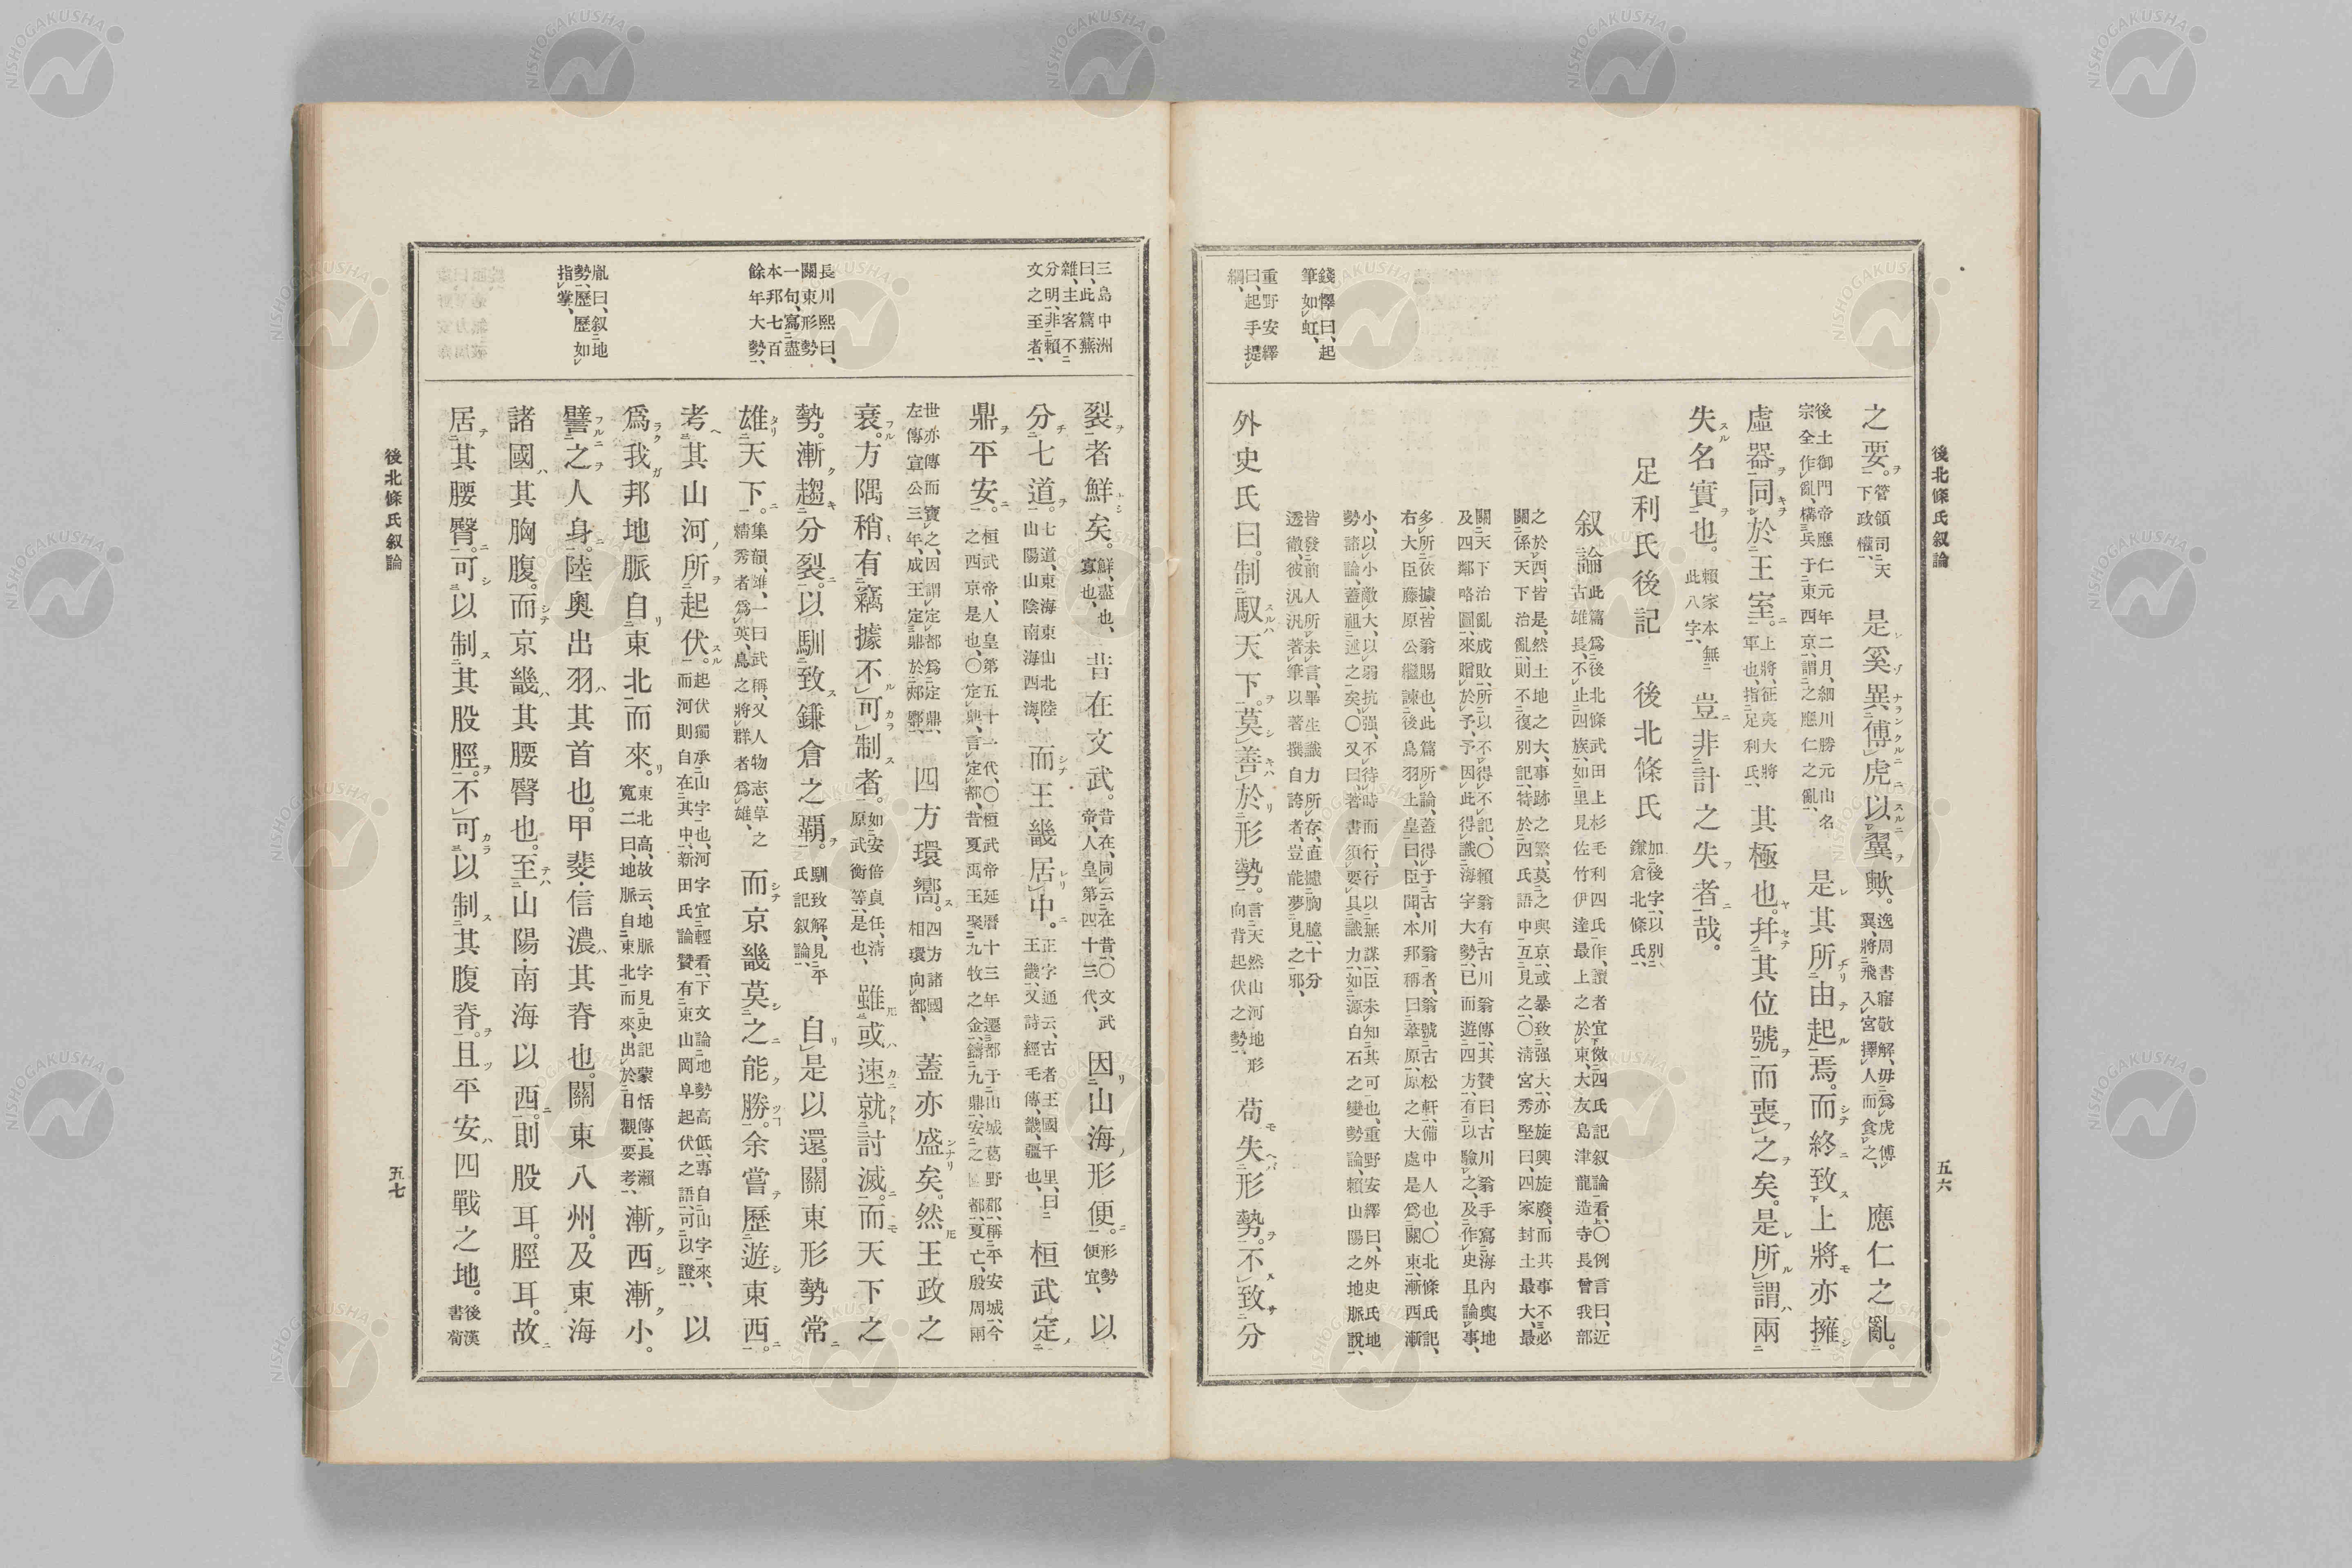 後北條氏叙論
五六
錢懌曰、起
筆如虹、
重野安繹
曰、起手提
綱、
之要。管領司天下政權、是奚異傅虎以翼歟。逸周書寤敬解、毋爲虎傅翼、將飛入宮擇人而食之、應仁之亂。
後土御門帝應仁元年二月、細川勝元山名宗全作亂、構兵于東西京、謂之應仁之亂、是其所由起焉。而終致上將亦擁
虛器同於王室。上將、征夷大將軍也、指足利氏、其極也。幷其位號而喪之矣。是所謂兩
失名實也。賴家本無此八字、豈非計之失者哉。
足利氏後記 後北條氏 加後字、以別鎌倉北條氏、
叙論 此篇爲後北條武田上杉毛利四氏作、讀者宜做四氏記叙論看、〇例言曰、近古雄長、不止四族、如里見佐竹伊達最上之於東、大友島津龍造寺長曾我部
之於西、皆是、然土地之大、事跡之繁、莫之與京、或暴致强大、亦旋興旋廢、而其事不必關係天下治亂、則不復別記、特於四氏語中互見之、〇淸宮秀堅曰、四家封土最大、最
關天下治亂成敗、所以不得不記、〇賴翁有古川翁傳、其贊曰、古川翁手寫海內輿地及四鄰略圖、來贈於予、予因此得識海宇大勢、已而遊四方、有以驗之、及作史且論事、
多所依據、皆翁賜也、此篇所論、蓋得于古川翁者、翁號古松軒、備中人也、〇北條氏記、右大臣藤原公繼諫後鳥羽上皇曰、臣聞、本邦稱曰葦原、原之大處是爲關東、漸西漸
小、以小敵大、以弱抗强、不待時而行、行以無謀、臣未知其可也、重野安繹曰、外史氏地勢諸論、蓋祖述之矣、〇又曰、著書須要具識力、如源白石之變勢論、賴山陽之地脈說、
皆發前人所未言、畢生識力所存、直攄胸臆、十分透徹、彼汎汎著筆以著撰自誇者、豈能夢見之邪、
外史氏曰。制馭天下。莫善於形勢。言天然山河地形向背起伏之勢、苟失形勢。不致分
後北條氏叙論
五七
三島中洲
曰、此篇蕪
雜、主客不
分明、非賴
文之至者、
長川熙曰、
關東形勢
一句、寫盡
本邦七百
餘年大勢、
胤曰、叙地
勢、歷歷如
指掌、
裂者鮮矣。鮮、盡也、寡也、昔在文武。昔在、同云在昔、〇文武帝、人皇第四十三代、因山海形便。形勢便宜、以
分七道。七道、東海東山北陸山陽山陰南海西海、而王畿居中。正字通云、古者王國千里、曰王畿、又詩經毛傳、畿、疆也、桓武定
鼎平安。桓武帝、人皇第五十一代、〇桓武帝延曆十三年遷都于山城葛野郡、稱平安城、今之西京是也、〇定鼎、言定都、昔夏禹王聚九牧之金、鑄九鼎、安之 都、夏亡、殷周兩
世亦傳而寶之、因謂定都爲定鼎、左傳宣公三年、成王定鼎於郟鄏、四方環嚮。四方諸國相環向都、蓋亦盛矣。然王政之
衰。方隅稍有竊據不可制者。如安倍貞任、淸原武衡等、是也、雖或速就討滅。而天下之
勢。漸趨分裂。以馴致鎌倉之覇。馴致解、見平氏記叙論、自是以還。關東形勢常
雄天下。集韻、雄、一曰武稱、又人物志、草之精秀者爲英、鳥之將群者爲雄、而京畿莫之能勝。余嘗歷遊東西。
考其山河所起伏。起伏獨承山字也、河字宜輕看、下文論地勢高低、專自山字來、而河則自在其中、新田氏論贊有東山岡阜起伏之語、可以證、以
爲我邦地脈自東北而來。東北高、故云、地脈字見史記蒙恬傳、長瀨寬二曰、地脈自東北而來、出於日觀要考、漸西漸小。
譬之人身。陸奧出羽其首也。甲斐・信濃其脊也。關東八州。及東海
諸國其胸腹。而京畿其腰臀也。至山陽・南海以西。則股耳。脛耳。故
居其腰臀。可以制其股脛。不可以制其腹脊。且平安四戰之地。後漢書荀